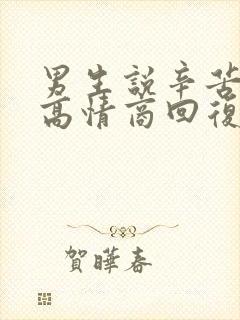 男生說辛苦
高情商回復
賀曄春